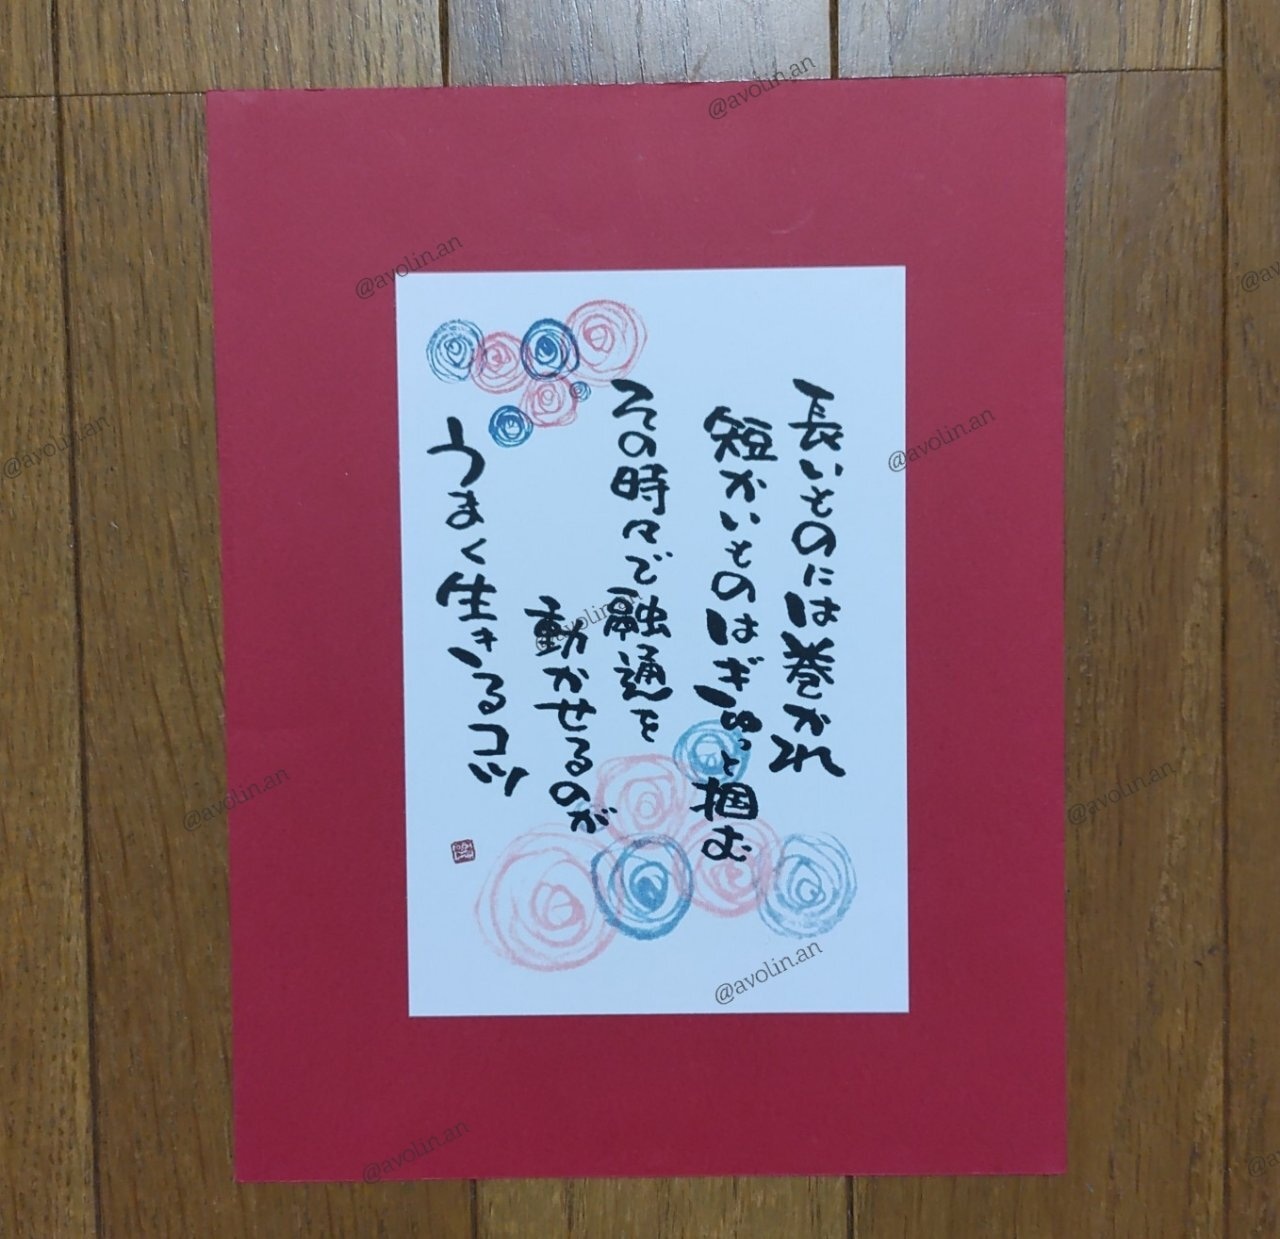 長いものには巻かれ
短かいものはぎゅっと掴む
その時々で融通を
動かせるのが
うまく生きるコツ
@avolin.an
@avolin.an
@avolin.an
@avolin.an
@avolin.an
@avolin.an
@avolin.an
@avolin.an
@avolin.an